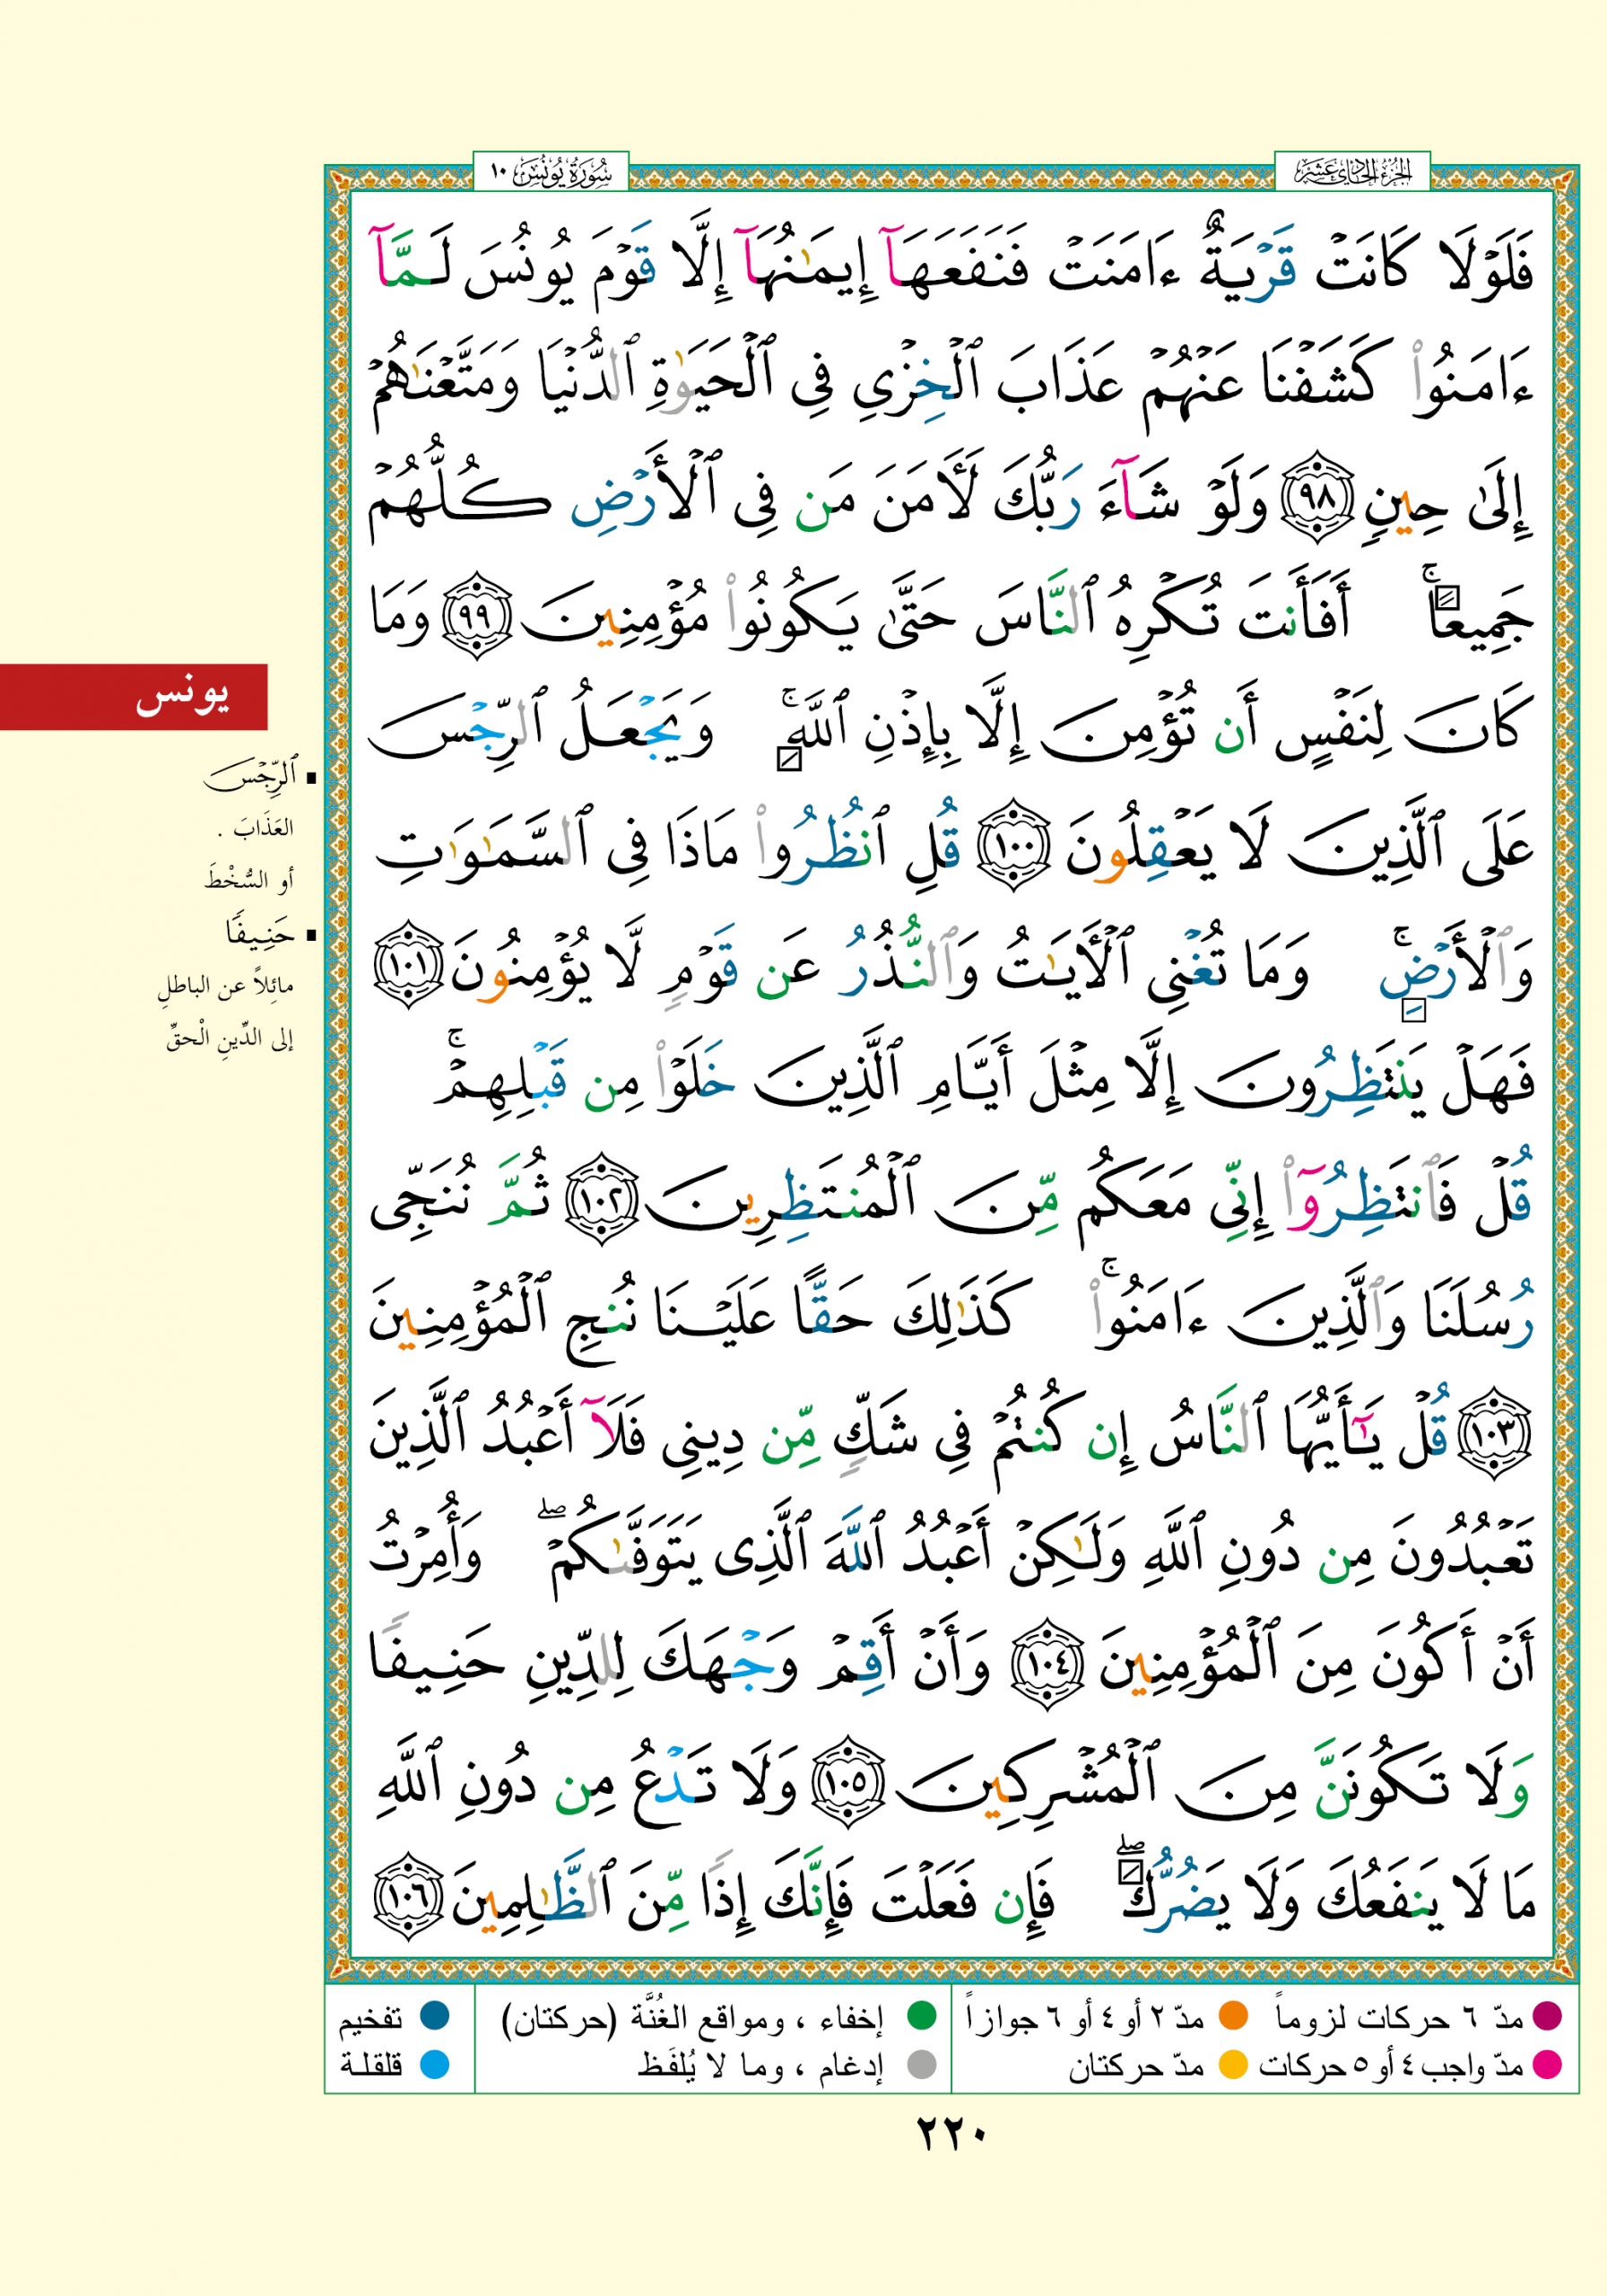 الجزء الحادي عشر
سورة يونس ١٠
فَلَوْلَا كَانَتْ قَرْيَةٌ ءَامَنَتْ فَنَفَعَهَآ إِيمَٰنُهَآ إِلَّا قَوْمَ يُونُسَ لَمَّآ
ءَامَنُوا۟ كَشَفْنَا عَنْهُمْ عَذَابَ ٱلْخِزْىِ فِى ٱلْحَيَوٰةِ ٱلدُّنْيَا وَمَتَّعْنَٰهُمْ
إِلَىٰ حِينٍ ٩٨ وَلَوْ شَآءَ رَبُّكَ لَءَامَنَ مَن فِى ٱلْأَرْضِ كُلُّهُمْ
جَمِيعًا ۚ أَفَأَنتَ تُكْرِهُ ٱلنَّاسَ حَتَّىٰ يَكُونُوا۟ مُؤْمِنِينَ ٩٩ وَمَا
كَانَ لِنَفْسٍ أَن تُؤْمِنَ إِلَّا بِإِذْنِ ٱللَّهِ ۚ وَيَجْعَلُ ٱلرِّجْسَ
عَلَى ٱلَّذِينَ لَا يَعْقِلُونَ ١٠٠ قُلِ ٱنظُرُوا۟ مَاذَا فِى ٱلسَّمَٰوَٰتِ
وَٱلْأَرْضِ ۚ وَمَا تُغْنِى ٱلْءَايَٰتُ وَٱلنُّذُرُ عَن قَوْمٍ لَّا يُؤْمِنُونَ ١٠١
فَهَلْ يَنتَظِرُونَ إِلَّا مِثْلَ أَيَّامِ ٱلَّذِينَ خَلَوْا۟ مِن قَبْلِهِمْ ۚ
قُلْ فَٱنتَظِرُوٓا۟ إِنِّى مَعَكُم مِّنَ ٱلْمُنتَظِرِينَ ١٠٢ ثُمَّ نُنَجِّى
رُسُلَنَا وَٱلَّذِينَ ءَامَنُوا۟ ۚ كَذَٰلِكَ حَقًّا عَلَيْنَا نُنجِ ٱلْمُؤْمِنِينَ
١٠٣ قُلْ يَٰٓأَيُّهَا ٱلنَّاسُ إِن كُنتُمْ فِى شَكٍّ مِّن دِينِى فَلَآ أَعْبُدُ ٱلَّذِينَ
تَعْبُدُونَ مِن دُونِ ٱللَّهِ وَلَٰكِنْ أَعْبُدُ ٱللَّهَ ٱلَّذِى يَتَوَفَّىٰكُمْ ۖ وَأُمِرْتُ
أَنْ أَكُونَ مِنَ ٱلْمُؤْمِنِينَ ١٠٤ وَأَنْ أَقِمْ وَجْهَكَ لِلدِّينِ حَنِيفًا
وَلَا تَكُونَنَّ مِنَ ٱلْمُشْرِكِينَ ١٠٥ وَلَا تَدْعُ مِن دُونِ ٱللَّهِ
مَا لَا يَنفَعُكَ وَلَا يَضُرُّكَ ۖ فَإِن فَعَلْتَ فَإِنَّكَ إِذًا مِّنَ ٱلظَّٰلِمِينَ ١٠٦
يونس
ٱلرِّجْسَ
العَذَابَ .
أو السُّخْطَ
حَنِيفًا
مائِلاً عن الباطلِ
إلى الدِّينِ الْحقِّ
مدّ ٦ حركات لزوماً
مدّ ٢ أو ٤ أو ٦ جوازاً
إخفاء ، ومواقع الغُنَّة (حركتان)
تفخيم
مدّ واجب ٤ أو ٥ حركات
مدّ حركتان
إدغام ، وما لا يُلفَظ
قلقلة
٢٢٠